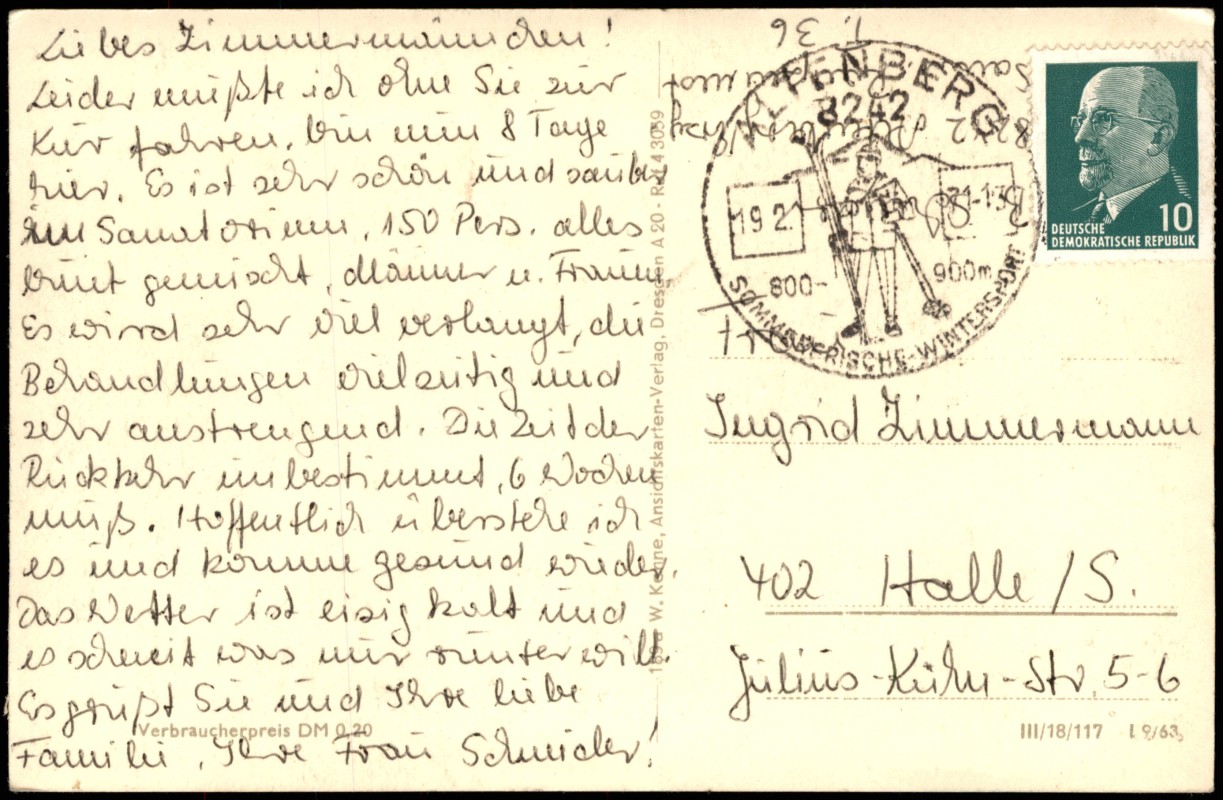 Liebes Zimmermännchen!
Leider mußte ich ohne Sie zur
Kur fahren, bin nun 8 Tage
hier. Es ist sehr schön und sauber
im Sanatorium, 150 Pers. alles
bunt gemischt, Männer u. Frauen.
Es wird sehr viel verlangt, die
Behandlungen vielseitig und
sehr anstrengend. Die Zeit der
Rückkehr unbestimmt, 6 Wochen
muß. Hoffentlich überstehe ich
es und komme gesund wieder.
Das Wetter ist eisig kalt und
es schneit was nur runter will.
Es grüßt Sie und Ihre liebe
Familie, Ihre Frau Schneider!
Verbraucherpreis DM 0,20
W. Kenne, Ansichtskarten-Verlag, Dresden A 20
ALTENBERG
8242
19.2.71-13
800-
900m
SOMMERFRISCHE-WINTERSPORT
DEUTSCHE
DEMOKRATISCHE REPUBLIK
10
Ingrid Zimmermann
402 Halle/S.
Julius-Kühn-Str. 5-6
III/18/117 L 9/63